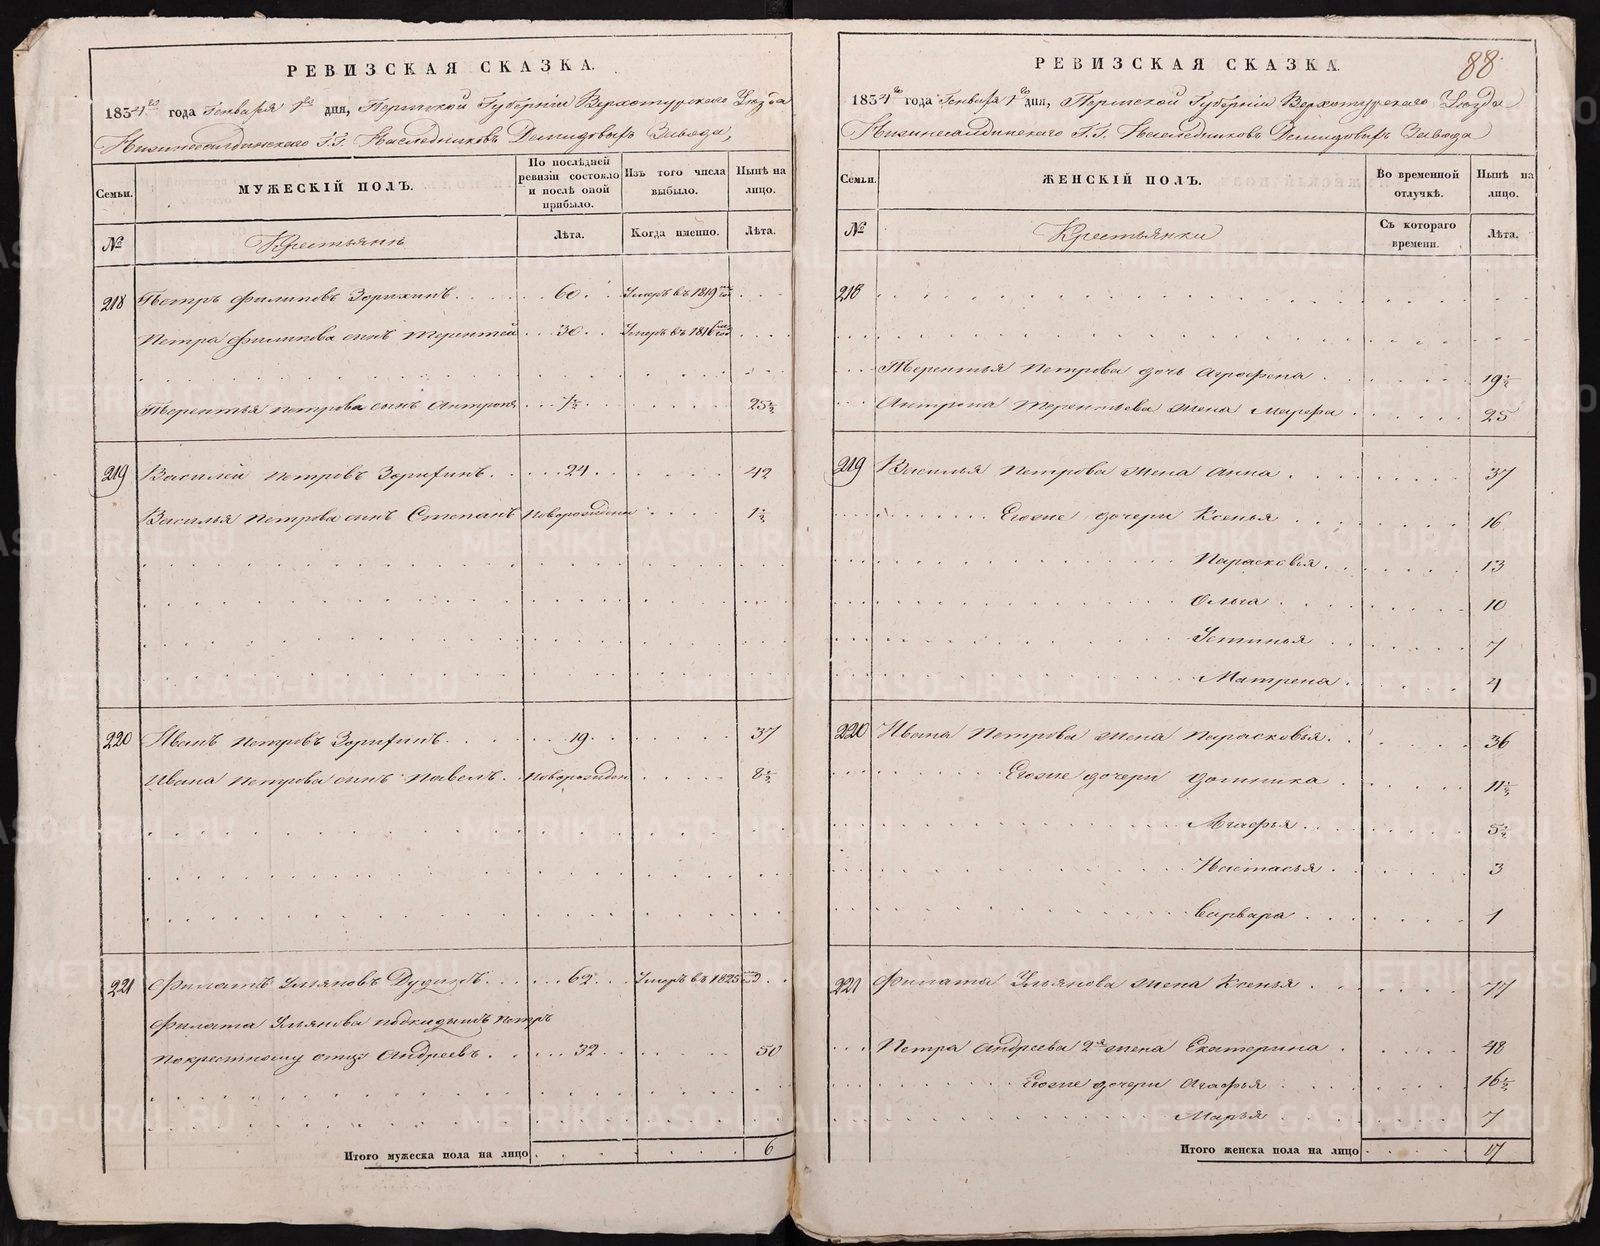 РЕВИЗСКАЯ СКАЗКА.
1834го года Генваря 1го дня, Пермской Губернiи Верхотурскаго Уезда
Нижнесалдинскаго Г.Г. Наследниковъ Демидовыхъ Завода,
Семьи.
МУЖЕСКIЙ ПОЛЪ.
По послѣдней ревизiи состояло и послѣ оной прибыло.
Изъ того числа выбыло.
Нынѣ на лицо.
№
Крестьянъ
Лѣта.
Когда именно.
Лѣта.
218 Петръ Филиповъ Зорихинъ 60 Умеръ въ 1819
Петра Филипова сынъ Терентей 30 Умеръ въ 1816
Терентья Петрова сынъ Антропъ 7½ 25½
219 Василей Петровъ Зорихинъ 24 42
Василья Петрова сынъ Степанъ Новорожденъ 1½
220 Иванъ Петровъ Зорихинъ 19 37
Ивана Петрова сынъ Павелъ Новорожден 8½
221 Филатъ Ульяновъ 62 Умеръ въ 1825
Филата Ульянова подкидышъ Петръ
покрестному отцу Андреевъ 32 50
Итого мужеска пола на лицо 6
88
РЕВИЗСКАЯ СКАЗКА.
1834го года Генваря 1го дня, Пермской Губернiи Верхотурскаго Уезда
Нижнесалдинскаго Г.Г. Наследниковъ Демидовыхъ Завода
Семьи.
ЖЕНСКIЙ ПОЛЪ.
Во временной отлучкѣ.
Нынѣ на лицо.
№
Крестьянки
Съ котораго времени.
Лѣта.
218
Терентья Петрова дочь Агрофена 19½
Антропа Терентьева жена Марфа 25
219 Василья Петрова жена Анна 37
Егоже дочери Ксенья 16
Парасковья 13
Ольга 10
Устинья 7
Матрена 4
220 Ивана Петрова жена Парасковья 36
Егоже дочери Домника 11½
Агафья 5½
Настасья 3
Варвара 1
221 Филата Ульянова жена Ксенья 77
Петра Андреева 2я жена Екатерина 48
Егоже дочери Агафья 16½
Марья 7
Итого женска пола на лицо 17
METRIKI.GASO-URAL.RU